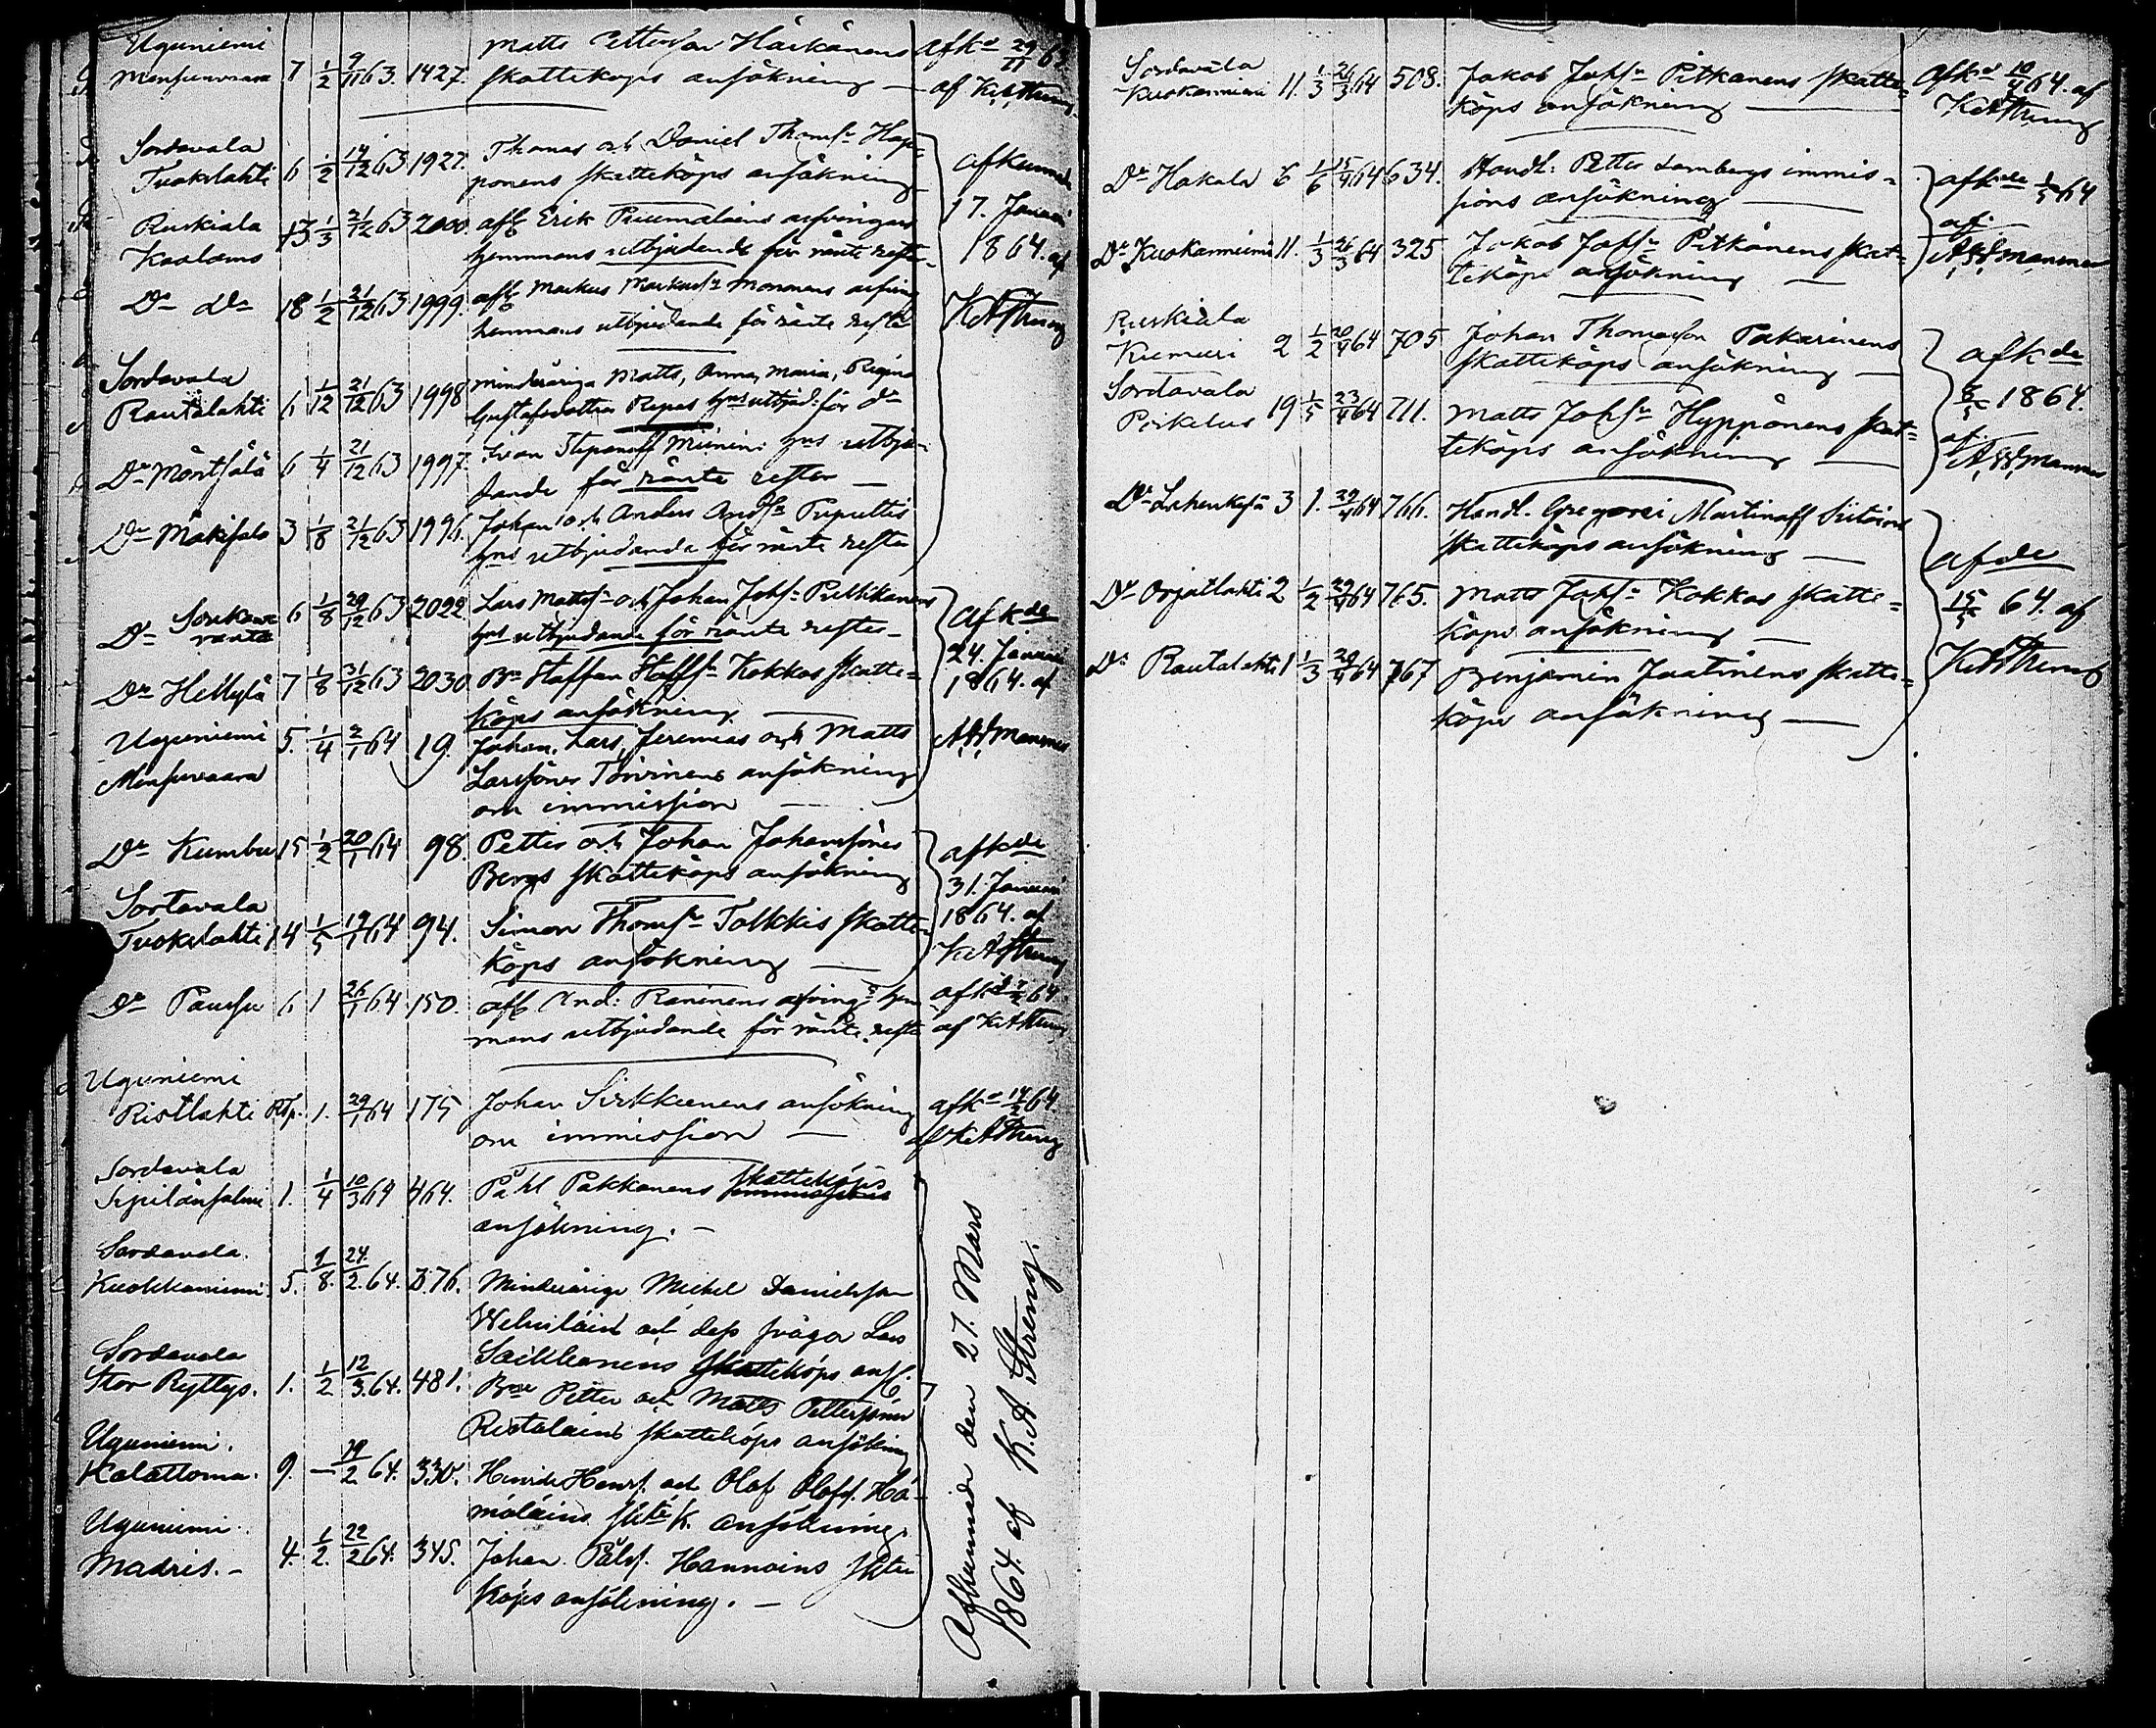 Uguniemi
Mensunvaara 7 1/2 9/11 63. 1427. Matts Pettersson Härkönens
skatteköps ansökning — afkd 29/11 63
af KAStreng
Sordavala
Tuokslahti 6 1/2 14/12 63 1927. Thomas och Daniel Thomss. Hap-
ponens skatteköps ansökning
Ruskiala
Kaalamo 13 1/3 21/12 63 2000. afl. Erik arfvingars
hemmans utbjudande för ränte rester
Do do 18 1/2 21/12 63 1999. afl. Markus Markuss. Mononens arfving
hemmans utbjudande för ränte rester
Sordavala
Rautalahti 6 1/12 21/12 63 1998 minderåriga Matts, Anna, Maria, Regina
Gustafsdöttrar Repos hms utbjud. för do
Do Möntsälä 6 1/4 21/12 63 1997. Ivan Stepanoff hms utbju-
dande för ränte rester —
Do Mäkisalo 3 1/8 21/12 63 1996. Johan och Anders Andss. Puputtis
hms utbjudande för ränte rester
afkunnade
17. Januari
1864. af
KAStreng
Do Sorikane
ranta 6 1/8 29/12 63 2022. Lars Mattss. och Johan Johss. Pullikanens
hms utbjudande för ränte rester —
Do Hellylä 7 1/8 31/12 63 2030 Bn Staffan Staffss. Kokkos skatte-
köps ansökning
Uguniemi
Mensuvaara 5. 1/4 2/1 64 19. Johan, Lars, Jeremias och Matts
Larssöners Toivinens ansökning
om immission —
afkde
24. Januari
1864. af
Do Kumbu 15 1/2 20/1 64 98. Petter och Johan Johanssöners
Bergs skatteköps ansökning
Sortavala
Tuokslahti 14 1/5 19/1 64 94. Simon Thomss. Tolkkis skatte-
köps ansökning —
afkde
31. Januari
1864. af
KAStreng
Do Paussu 6 1 26/1 64 150. afl. And: Raninens arfving: hem
mans utbjudande för ränte rester
afkd 7/2 64
af KAStreng
Uguniemi
Ristlahti Rtp. 1. 29/1 64 175 Johan Sirkkunens ansökning
om immission —
afkd 14/2 64.
af KAStreng
Sordavala
1. 1/4 10/3 64 464. Påhl Pakkanens skatteköps
ansökning. —
Sordavala.
Kuokkaniemi. 5. 1/8. 24/2. 64. 376. Minderårige Michel Danielsson
och dess svåger Lars
Saikkonens skatteköps ans.
Sordavala
Stor Ryttys. 1. 1/2 12/3. 64. 481. Bne Petter och Matts Petterssöner
Ristolains skatteköps ansökning
Uguniemi.
Kalattoma. 9. — 19/2 64. 330. Henrik Henrs. och Olof Olofs. Hä-
mäläins skte k. ansökning.
Uguniemi.
Madris. — 4. 1/2. 22/2 64. 345. Johan Påls. Hannoins skte
köps ansökning. —
Afkunnade den 27. Mars
1864 af K.A. Streng.
Sordavala
Kuokanniemi 11. 1/3 26/3 64 508. Jakob Johss. Pitkänens skatte-
köps ansökning —
Afkd 10/4 64. af
KAStreng
Do Hakala 6 1/6 15/4 64 634. Handl: Petter Lambergs immis-
sions ansökning —
Do Kuokanniemi 11. 1/3 26/3 64 325 Jakob Johss. Pitkänens skat-
teköps ansökning —
afkde 1/5 64
af
Ruskiala
Kumuri 2 1/2 20/4 64 705 Johan Thomasson Pakarinens
skatteköps ansökning —
Sordavala
19 1/5 23/4 64 711. Matts Johss. Hyppönens skat-
teköps ansökning —
afkde
8/5 1864.
af
Do 3 1. 29/4 64 766. Handl. Gregorei Martinoff Siitoins
skatteköps ansökning —
Do Orjatlahti 2 1/2 29/4 64 765. Matts Johss. Kokkos skatte-
köps ansökning —
Do Rautalahti 1 1/3 29/4 64 767 Benjamin Jaatinens skatte-
köps ansökning —
afde
15/5 64. af
KAStreng